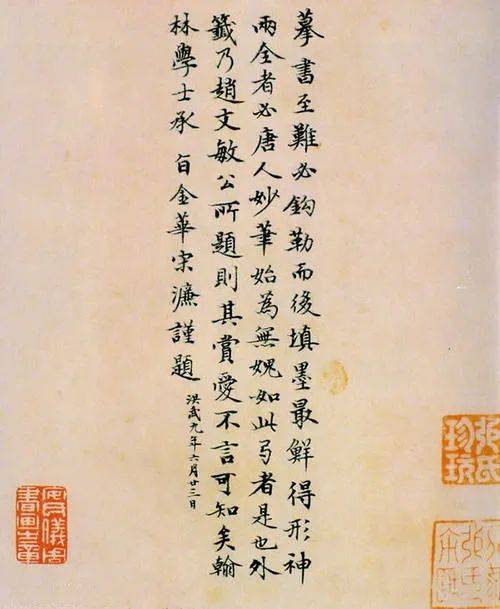 摹書至難必鈎勒而後填墨最鮮得形神
兩全者必唐人妙筆始為無媿如此弓者是也外
籤乃趙文敏公所題則其賞愛不言可知矣翰
林學士承旨金華宋濂謹題
洪武九年六月廿三日
張氏
珍玩
安儀周
書畫之章